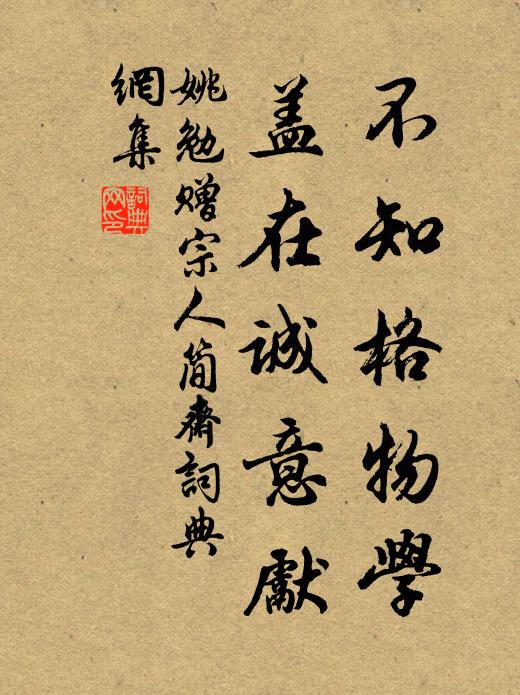 不知格物學
盖在誠意獻
姚勉赠宗人简齋詞典
網集
詞典網印